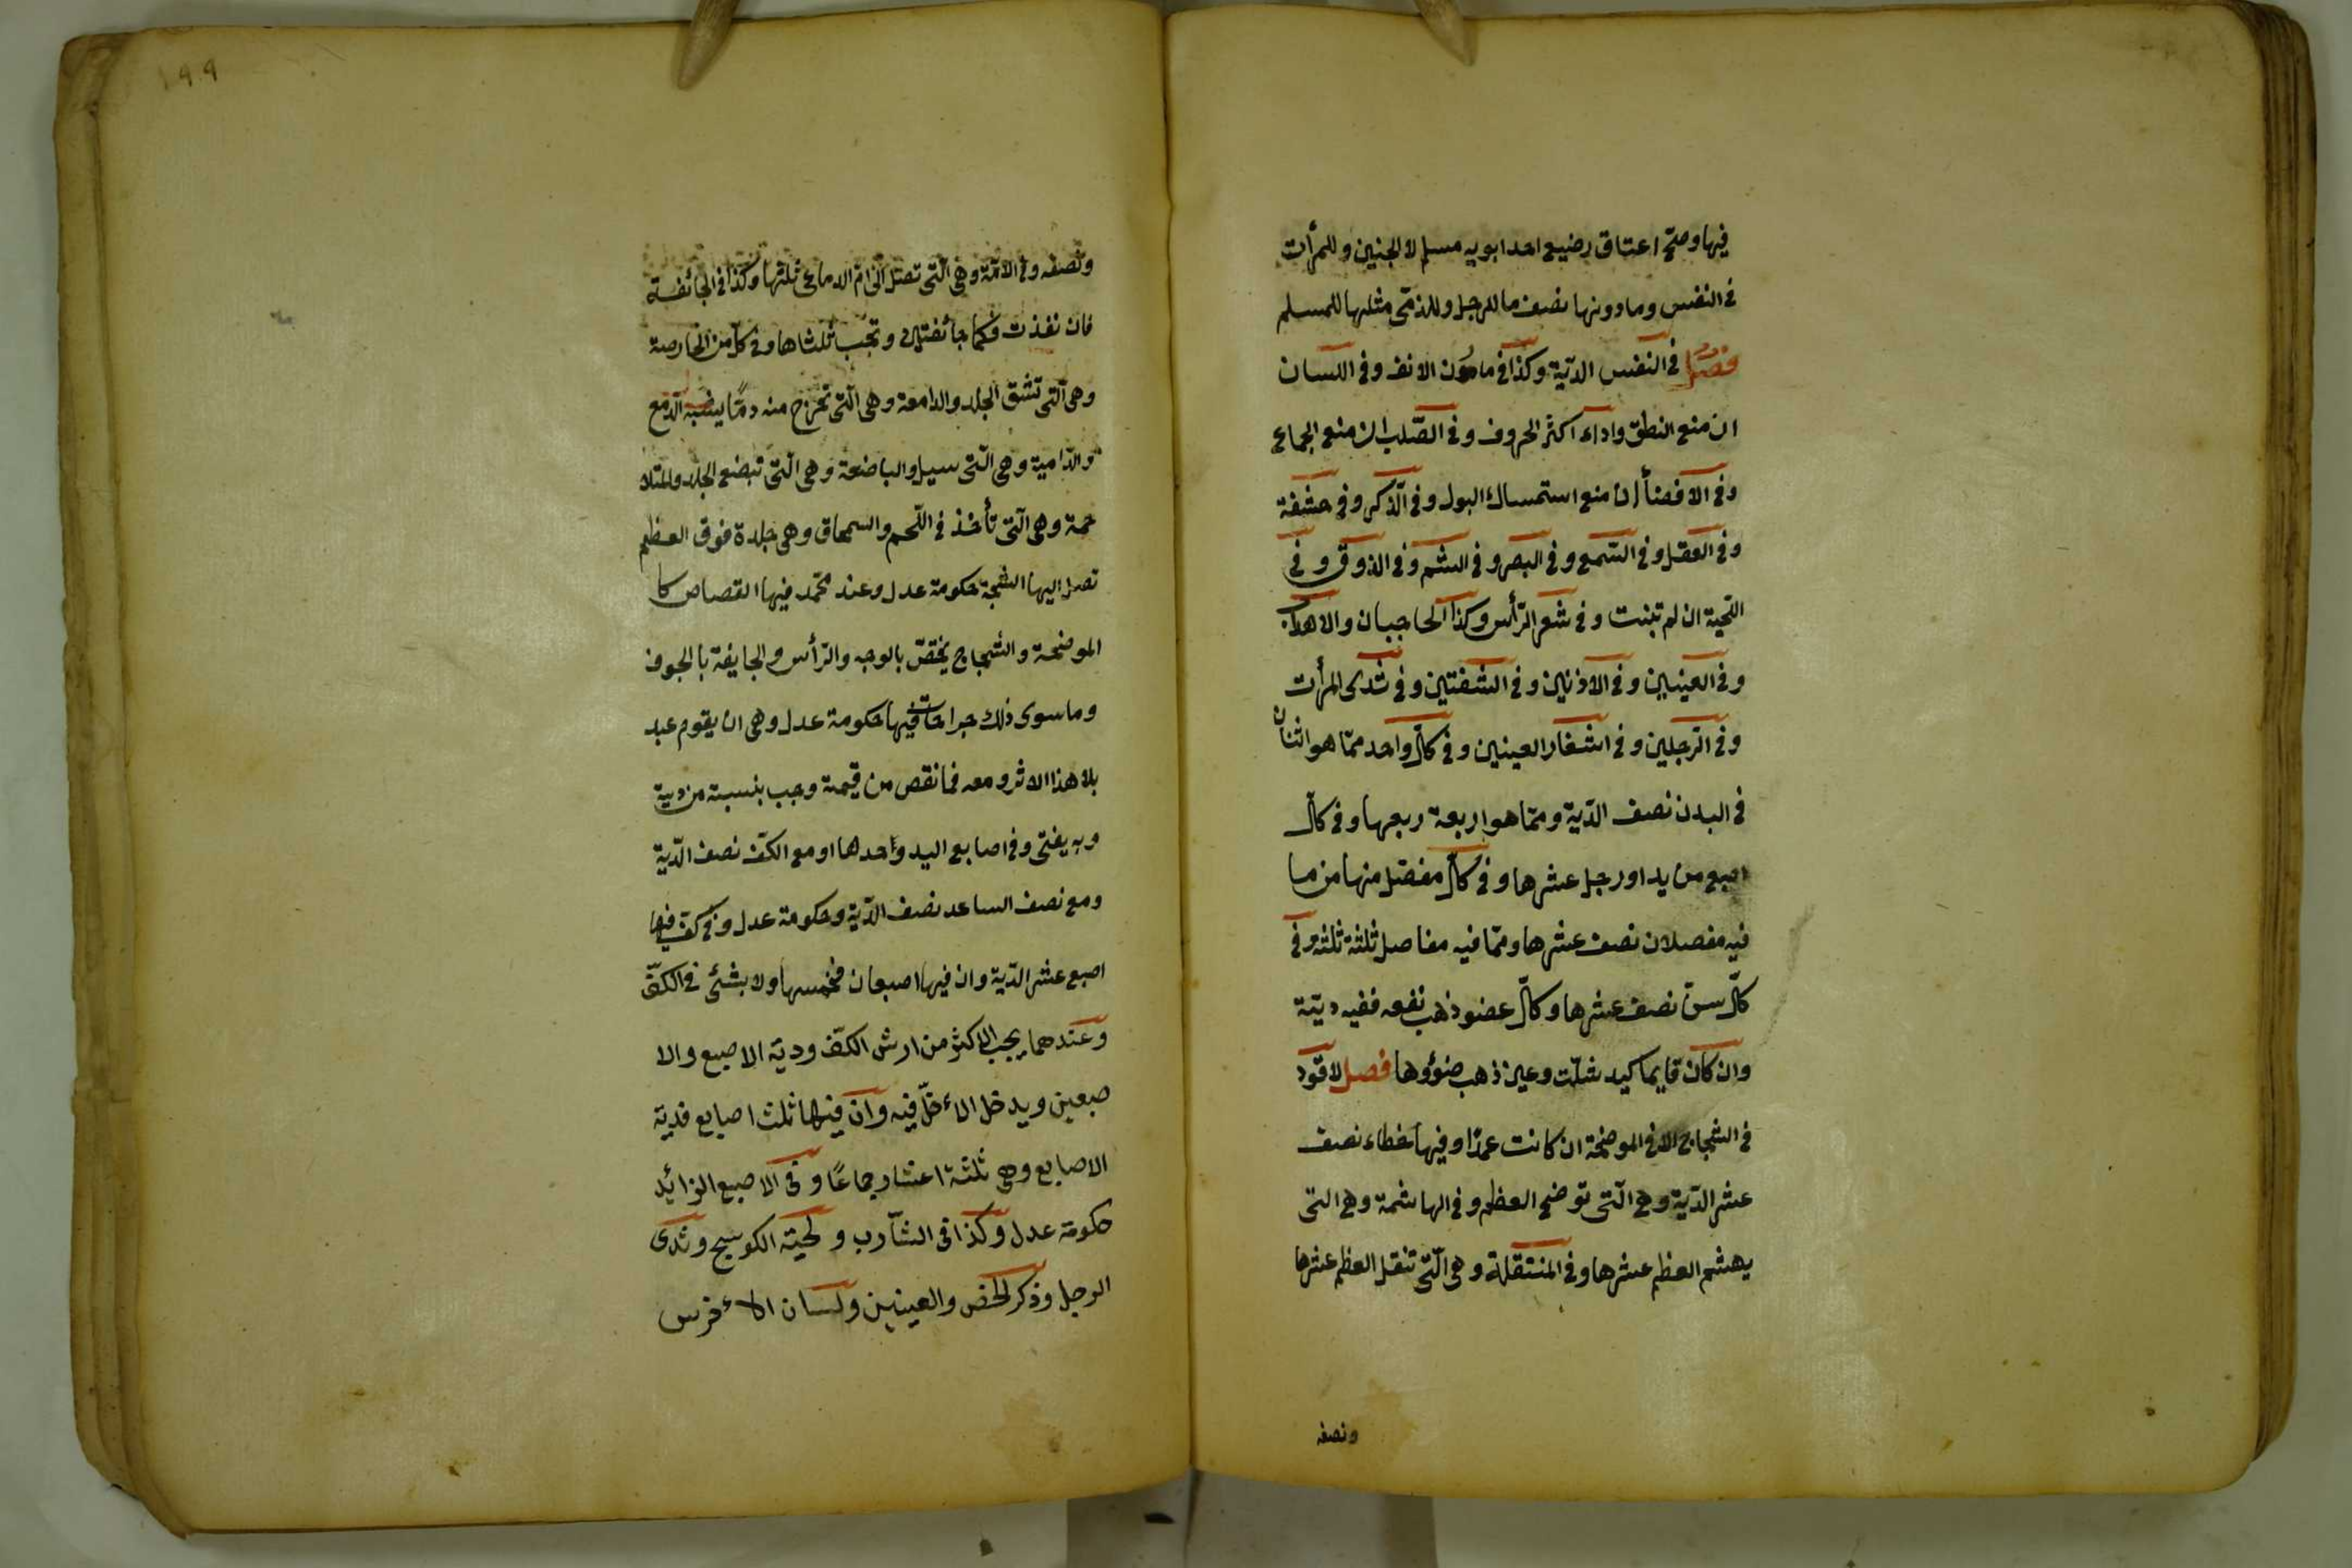 فيها وصحّ اعتاق رضيع احد ابويه مسلم لا الجنين وللمرأت
فى النفس وما دونها نصف ما للرجل وللذمّى مثلها للمسلم
فصل فى النفس الديّة وكذا فى مادون الانف وفى اللسان
ان منع النطق واداء اكثر الحروف وفى الصّلب ان منع الجماع
وفى الافضأ ان منع استمساك البول وفى الذّكر وفى حشفة
وفى العقل وفى السّمع وفى البصر وفى الشم وفى الذوق وفى
اللّحية ان لم تنبت وفى شعر الرّأس وكذا الحاجبان والاهداب
وفى العينين وفى الاذنين وفى الشفتين وفى ثدى المرأت
وفى الرّجلين وفى اشفار العينين وفى كلّ واحد ممّا هو اثنان
فى البدن نصف الدّية وممّا هو اربعة ربعها وفى كلّ
اصبع من يد او رجل عشرها وفى كلّ مفصل منها من ما
فيه مفصلان نصف عشرها وممّا فيه مفاصل ثلثة ثلثه وفى
كلّ سنّ نصف عشرها وكلّ عضو ذهب نفعه ففيه ديّة
وان كان قايما كيد شلّت وعين ذهب ضوؤها فصل لا قود
فى الشجاج الا فى الموضحة ان كانت عمدًا وفيها خطاء نصف
عشر الدّية وهى الّتى توضح العظم وفى الهاشمة وهى التى
يهشم العظم عشرها وفى المنتقلة وهى الّتى تنقل العظم عشرها
ونصفه
١٩٩
ونصفه وفى الامّة وهى الّتى تصل الى امّ الدماغ ثلثها وكذا فى الجائفة
فان نفذت فكما جائفتان وتجب ثلثاها وفى كلّ من الحارصة
وهى الّتى تشق الجلد والدامعة وهى الّتى تخرج منه دمًا يشبه الدّمع
والدّامية وهى الّتى سيل والباضعة وهى الّتى تبضع الجلد والمتلا
حمة وهى الّتى تأخذ فى اللّحم والسمحاق وهى جلدة فوق العظم
تصل اليها الشجة حكومة عدل وعند محمّد فيها القصاص كا
الموضحة والشجاج يختصّ بالوجه والرّأس والجايفة بالجوف
وما سوى ذلك جراحات فيها حكومة عدل وهى ان يقوم عبد
بلا هذا الاثر ومعه فما نقص من قيمة وجب بنسبة من دية
وبه يفتى وفى اصابع اليد واحدها او مع الكفّ نصف الدّية
ومع نصف الساعد نصف الدّية وحكومة عدل وفى كف فيها
اصبع عشر الدّية وان فيها اصبعان فخمسها ولا بشئ فى الكفّ
وعندهما يجب الاكثر من ارش الكفّ وديّة الاصبع والا
صبعين ويدخل الأقلّ فيه وان فيها ثلث اصابع فدية
الاصابع وهى ثلثة اعشار جماعًا وفى الاصبع الزائد
حكومة عدل وكذا فى الشّارب ولحية الكوسج وثدى
الرجل وذكر الخصّ والعينين ولسان الأخرس